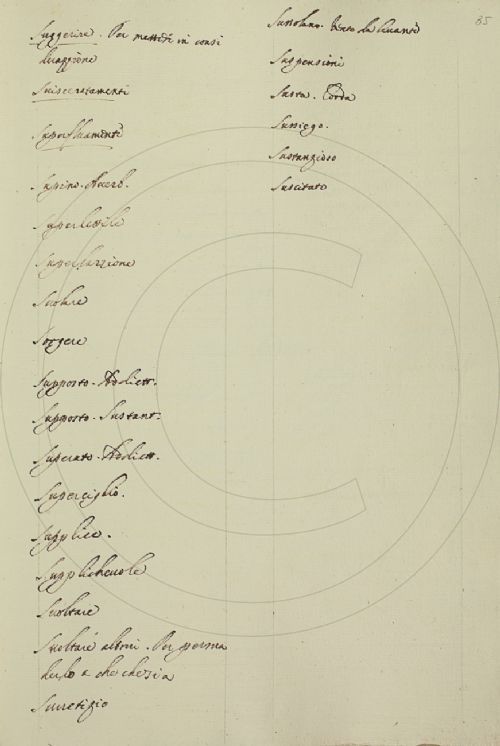 Suggerire. Per metter in consi
derazione
Suisceratamenti
Superfluamente
Supino. Averb.
Superlettile
Superlazione
Scolare
Sorgere
Supposto. Adiett.
Supposto. Sustant.
Superato. Adiett.
Superciglio.
Supplice.
Supplicheuole
Suoltare
Suoltare altrui. Per persua
derlo a che che sia
Surretizio
85
Sussolano. Vento da leuante
Suspensioni
Susta. Corda
Sussiego.
Sustanzioso
Suscitato